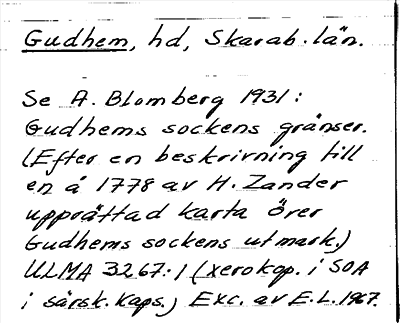 Gudhem, hd, Skarab. län.
Se A. Blomberg 1931:
Gudhems sockens gränser.
(Efter en beskrivning till
en å 1778 av H. Zander
upprättad karta örer
Gudhems sockens utmark.)
ULMA 3267:1 (xerokop. i SOA
i särsk. kaps.) Exc. av E.L. 1967.